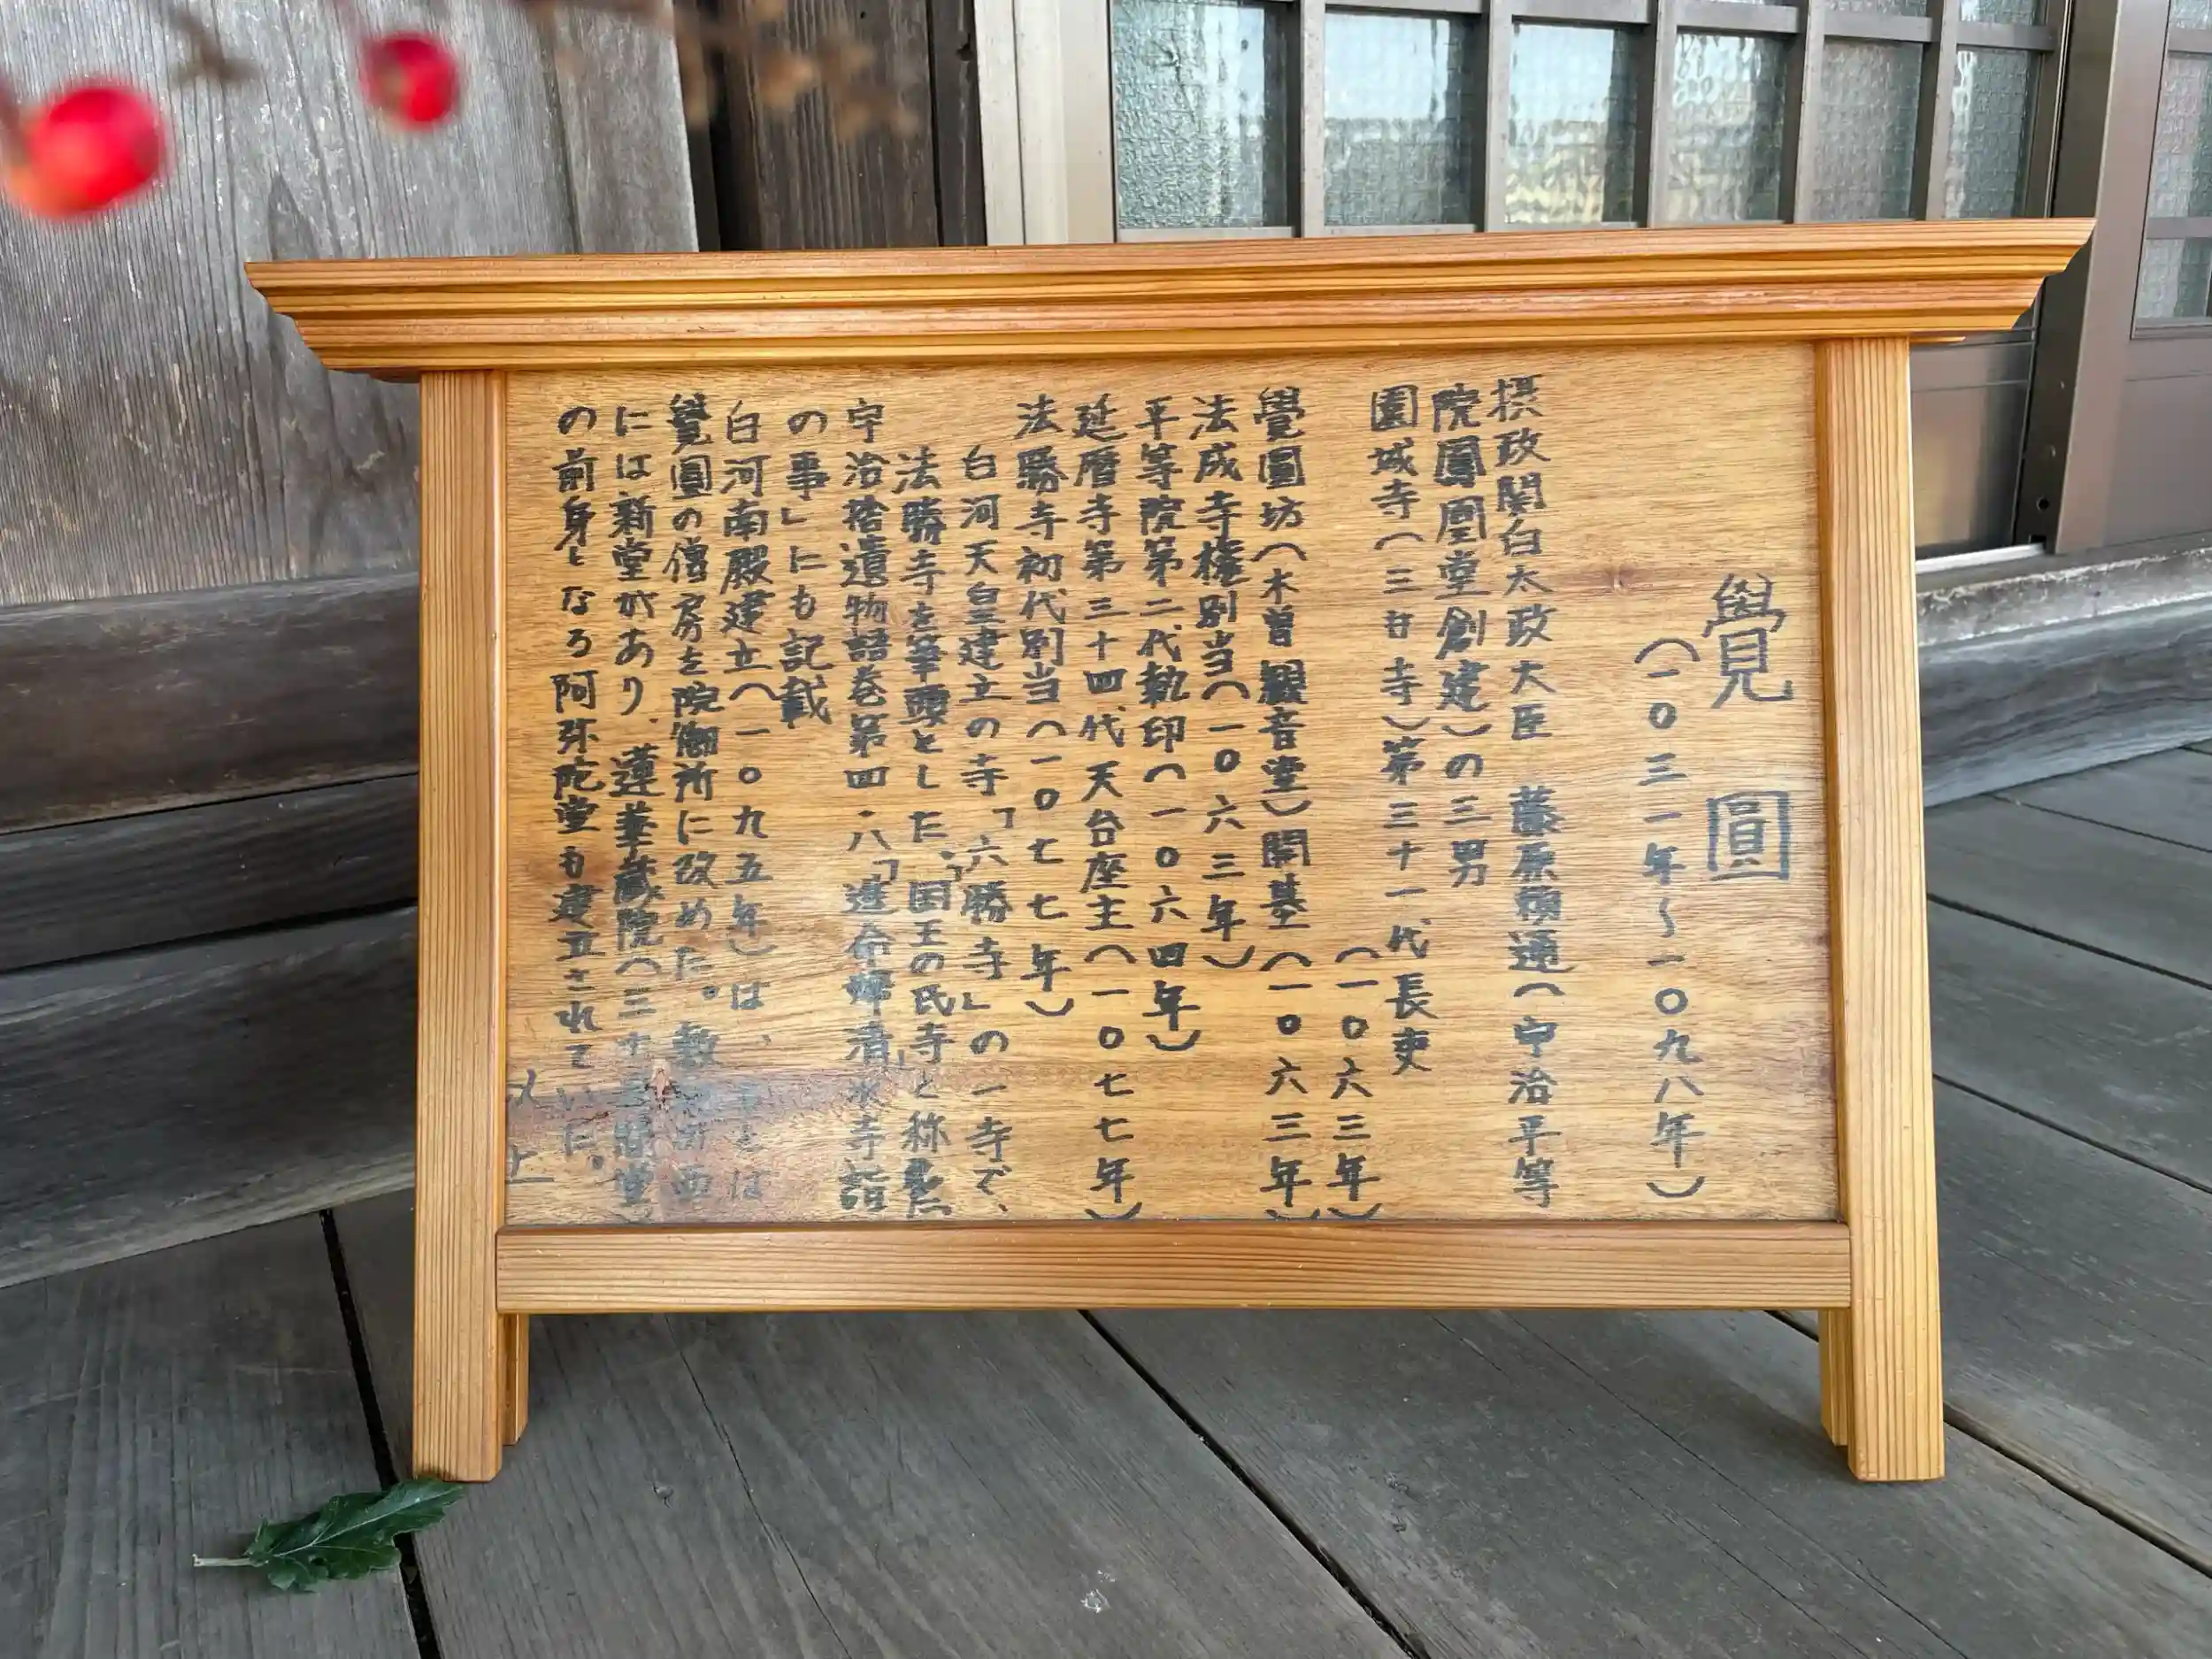 覺圓
（一〇三一年～一〇九八年）
摂政関白太政大臣 藤原頼通（宇治平等
院鳳凰堂創建）の三男
園城寺（三井寺）第三十一代長吏
（一〇六三年）
覺圓坊（木曽観音堂）開基（一〇六三年）
法成寺権別当（一〇六三年）
平等院第二代執印（一〇六四年）
延暦寺第三十四代天台座主（一〇七七年）
法勝寺初代別当（一〇七七年）
白河天皇建立の寺「六勝寺」の一寺で、
法勝寺を筆頭とした、「国王の氏寺」と称
宇治拾遺物語巻第四・八「進命婦清水寺詣
の事」にも記載
白河南殿建立（一〇九五年）は、
覺圓の僧房を院御所に改めた。敷
には新堂があり、蓮華蔵院（三十三間堂）
の前身となる阿弥陀堂も建立されていた。
以上